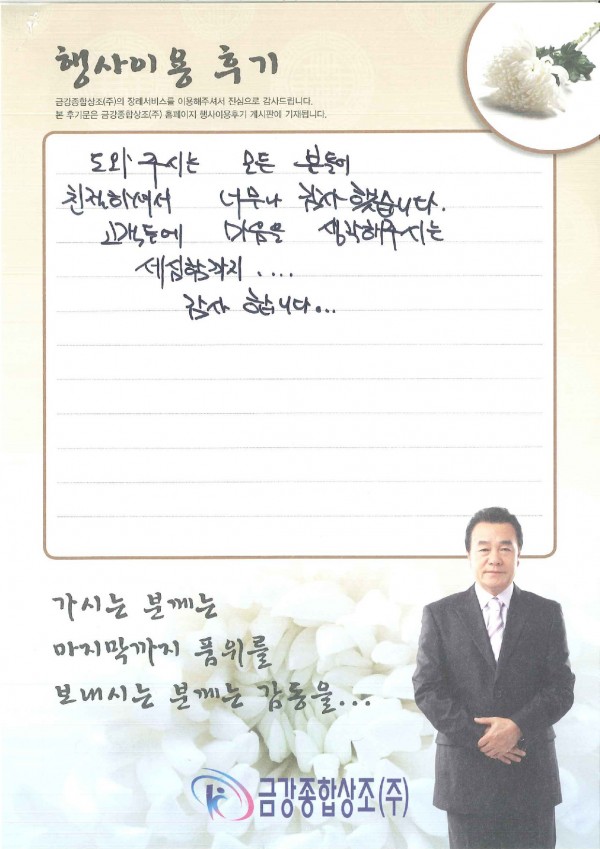 행사이용 후기
금강종합상조(주)의 장례서비스를 이용해주셔서 진심으로 감사드립니다.
본 후기문은 금강종합상조(주) 홈페이지 행사이용후기 게시판에 기재됩니다.
도와 주시는 모든 분들에
친절하셔서 너무나 감사 했습니다.
고객들에 마음을 생각해주시는
세심함까지 ....
감사 합니다...
가시는 분께는
마지막까지 품위를
보내시는 분께는 감동을...
금강종합상조(주)